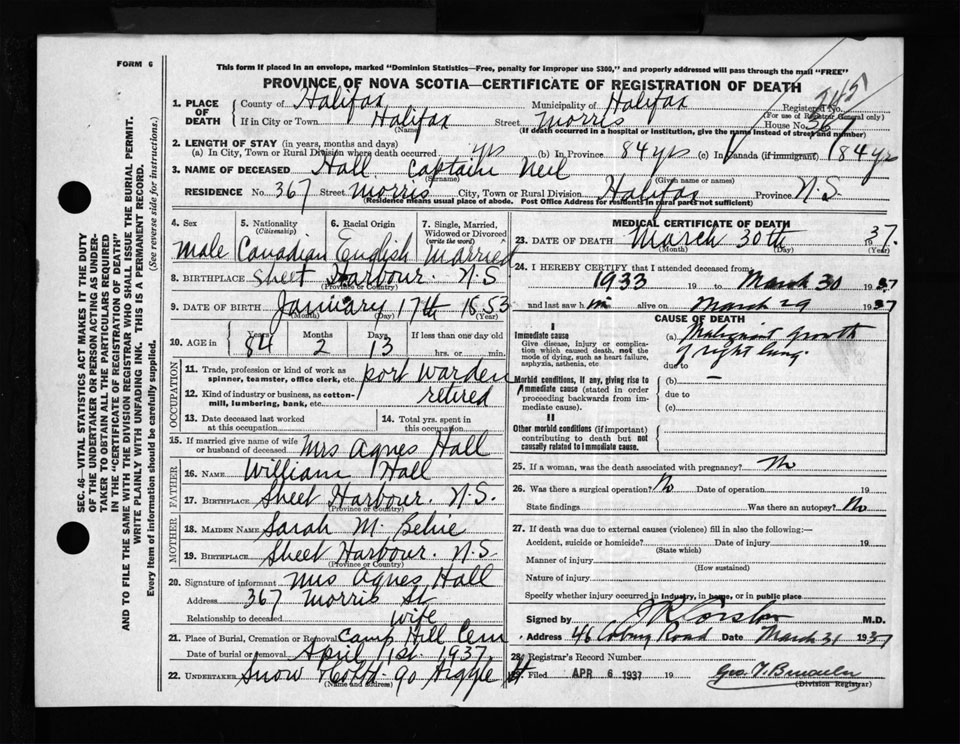 FORM 6
This form if placed in an envelope, marked "Dominion Statistics—Free, penalty for improper use $300," and properly addressed will pass through the mail "FREE"
PROVINCE OF NOVA SCOTIA—CERTIFICATE OF REGISTRATION OF DEATH
1. PLACE OF DEATH
County of Halifax Municipality of Halifax Registered No.
(For use of Registrar General only)
If in City or Town Halifax Street Morris House No. 367
(Name) (If death occurred in a hospital or institution, give the name instead of street and number)
2. LENGTH OF STAY (in years, months and days)
(a) In City, Town or Rural Division where death occurred yrs (b) In Province 84 yrs (c) In Canada (if immigrant) 84 yrs
3. NAME OF DECEASED Hall Captain Neil
(Surname) (Given name or names)
RESIDENCE No. 367 Street Morris City, Town or Rural Division Halifax Province N.S
(Residence means usual place of abode. Post Office Address for residents in rural parts not sufficient)
4. Sex
Male
5. Nationality
(Citizenship)
Canadian
6. Racial Origin
English
7. Single, Married, Widowed or Divorced
(write the word)
Married
8. BIRTHPLACE Sheet Harbour. N.S
(Province or Country)
9. DATE OF BIRTH January 17th 1853
(Month) (Day) (Year)
10. AGE in
Years Months Days If less than one day old
84 2 13 hrs. or min.
OCCUPATION
11. Trade, profession or kind of work as spinner, teamster, office clerk, etc. port warden
12. Kind of industry or business, as cotton-mill, lumbering, bank, etc. retired
13. Date deceased last worked at this occupation
14. Total yrs. spent in this occupation
15. If married give name of wife or husband of deceased Mrs Agnes Hall
FATHER
16. NAME William Hall
17. BIRTHPLACE Sheet Harbour. N.S.
(Province or Country)
MOTHER
18. MAIDEN NAME Sarah M.
19. BIRTHPLACE Sheet Harbour. N.S
(Province or Country)
20. Signature of informant Mrs Agnes Hall
Address 367 Morris St
Relationship to deceased wife
21. Place of Burial, Cremation or Removal Camp Hill Cem
Date of burial or removal April 1st 1937
22. UNDERTAKER Snow & Co Ltd. 90 Argyle St
(Name and address)
MEDICAL CERTIFICATE OF DEATH
23. DATE OF DEATH March 30th 1937.
(Month) (Day) (Year)
24. I HEREBY CERTIFY that I attended deceased from
1933 19 to March 30 1937
and last saw him alive on March 29 1937
CAUSE OF DEATH
I
Immediate cause
Give disease, injury or complication which caused death, not the mode of dying, such as heart failure, asphyxia, asthenia, etc.
(a) Malignant growth of right lung.
due to
Morbid conditions, if any, giving rise to immediate cause (stated in order proceeding backwards from immediate cause).
(b) —
due to
(c)
II
Other morbid conditions (if important) contributing to death but not causally related to immediate cause.
25. If a woman, was the death associated with pregnancy? No
26. Was there a surgical operation? No Date of operation 19
State findings Was there an autopsy? No
27. If death was due to external causes (violence) fill in also the following:—
Accident, suicide or homicide? Date of injury 19
(State which)
Manner of injury
(How sustained)
Nature of injury
Specify whether injury occurred in industry, in home, or in public place
Signed by J R Corston M.D.
Address 46 Coburg Road Date March 31 1937
28. Registrar's Record Number
Filed APR 6 1937 19
(Division Registrar)
SEC. 46—VITAL STATISTICS ACT MAKES IT THE DUTY
OF THE UNDERTAKER OR PERSON ACTING AS UNDER-
TAKER TO OBTAIN ALL THE PARTICULARS REQUIRED
IN THE "CERTIFICATE OF REGISTRATION OF DEATH"
AND TO FILE THE SAME WITH THE DIVISION REGISTRAR WHO SHALL ISSUE THE BURIAL PERMIT.
WRITE PLAINLY WITH UNFADING INK. THIS IS A PERMANENT RECORD.
Every item of information should be carefully supplied. (See reverse side for instructions.)